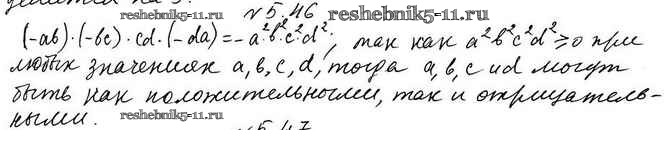 №5.46 reshebnik5-11.ru
(-ab)·(-bc)·cd·(-da)=-a²·b²·c²d²; так как a²b²c²d²≥0 при
любых значениях a,b,c,d, тогда a,b,c и d могут
быть как положительными, так и отрицатель-
ными. reshebnik5-11.ru